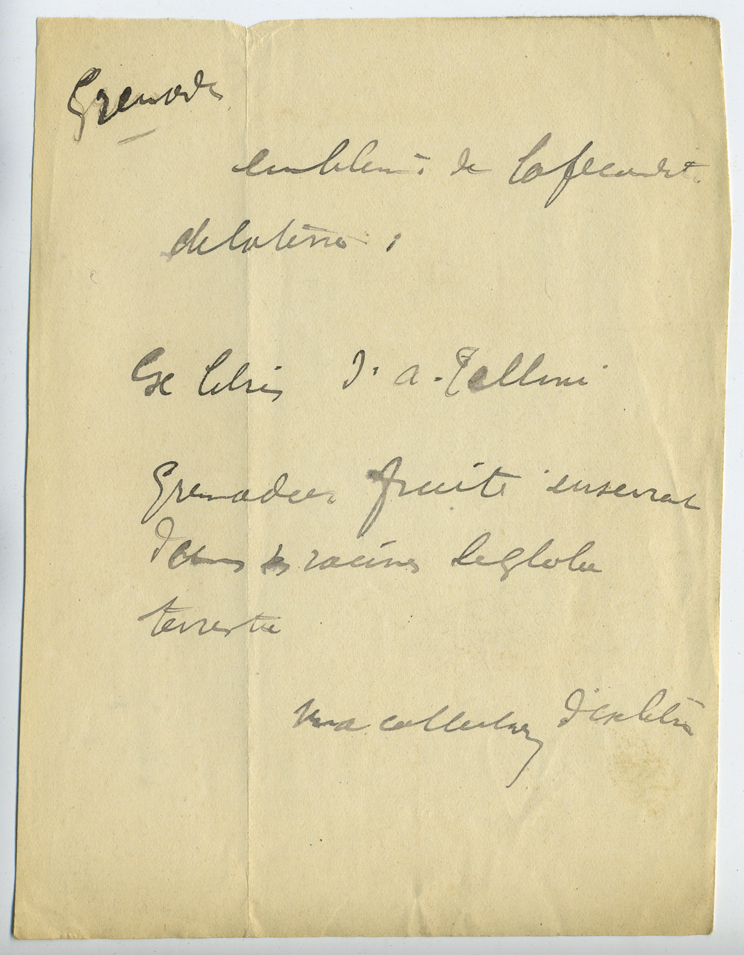 Grenade
emblème de la fécondité
de la terre ;
Ex libris d'A. Tellini
Grenadier fruité enserrant
dans ses racines le globe
terrestre
ma collection d'ex libris